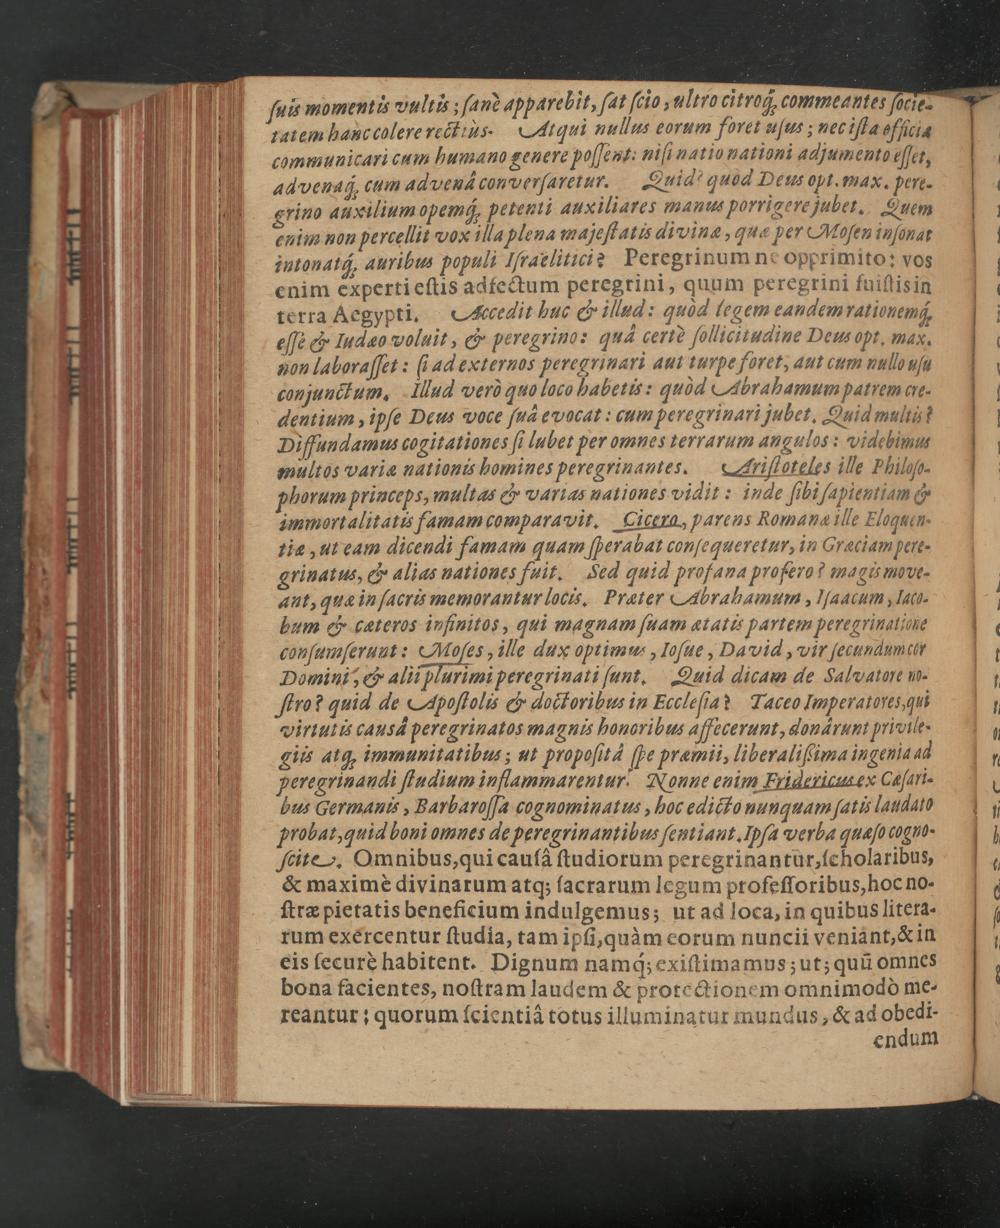 ſuis momentis vultis; ſanè apparebit, ſat ſcio, ultro citroq́; commeantes ſocie-
tatem hanc colere rectiùs. Atqui nullus eorum foret uſus; nec iſta officia
communicari cum humano genere poſſent: niſi natio nationi adjumento eſſet,
advenaq́; cum advenâ converſaretur. Quid? quòd Deus opt. max. pere-
grino auxilium opemq́; petenti auxiliares manus porrigere jubet. Quem
enim non percellit vox illa plena majeſtatis divinæ, quæ per Moſen inſonat
intonatq́; auribus populi Iſraelitici? Peregrinum ne opprimito: vos
enim experti eſtis adfectum peregrini, quum peregrini fuiſtis in
terra Aegypti. Accedit huc & illud: quòd legem eandem rationemq́;
eſſe & Iudæo voluit, & peregrino: quâ certè ſollicitudine Deus opt. max.
non laboraſſet: ſi ad externos peregrinari aut turpe foret, aut cum nullo uſu
conjunctum. Illud verò quo loco habetis: quòd Abrahamum patrem cre-
dentium, ipſe Deus voce ſuâ evocat: cum peregrinari jubet. Quid multis?
Diffundamus cogitationes ſi lubet per omnes terrarum angulos: videbimus
multos variæ nationis homines peregrinantes. Ariſtoteles ille Philoſo-
phorum princeps, multas & varias nationes vidit: inde ſibi ſapientiam &
immortalitatis famam comparavit. Cicero, parens Romanæ ille Eloquen-
tiæ, ut eam dicendi famam quam ſperabat conſequeretur, in Græciam pere-
grinatus, & alias nationes fuit. Sed quid profana profero? magis move-
ant, quæ in ſacris memorantur locis. Præter Abrahamum, Iſaacum, Iaco-
bum & cæteros infinitos, qui magnam ſuam ætatis partem peregrinatione
conſumſerunt: Moſes, ille dux optimus, Ioſue, David, vir ſecundum cor
Domini, & alii plurimi peregrinati ſunt. Quid dicam de Salvatore no-
ſtro? quid de Apoſtolis & doctoribus in Eccleſia? Taceo Imperatores, qui
virtutis causâ peregrinatos magnis honoribus affecerunt, donârunt privile-
giis atq́; immunitatibus; ut propoſitâ ſpe præmii, liberaliſſima ingenia ad
peregrinandi ſtudium inflammarentur. Nonne enim Fridericus ex Cæſari-
bus Germanis, Barbaroſſa cognominatus, hoc edicto nunquam ſatis laudato
probat, quid boni omnes de peregrinantibus ſentiant. Ipſa verba quæſo cogno-
ſcite. Omnibus, qui cauſâ ſtudiorum peregrinantur, ſcholaribus,
& maximè divinarum atq; ſacrarum legum profeſſoribus, hoc no-
ſtræ pietatis beneficium indulgemus; ut ad loca, in quibus litera-
rum exercentur ſtudia, tam ipſi, quàm eorum nuncii veniant, & in
eis ſecurè habitent. Dignum namq́; exiſtimamus; ut; quū omnes
bona facientes, noſtram laudem & protectionem omnimodò me-
reantur; quorum ſcientiâ totus illuminatur mundus, & ad obedi-
endum